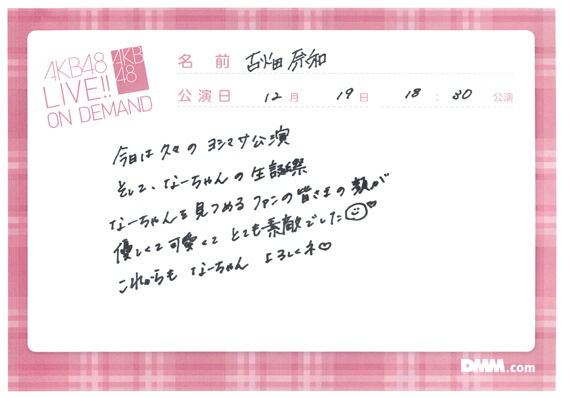 AKB48
LIVE!!
ON DEMAND
AKB
48
名前 古畑奈和
公演日 12月 19日 18:30 公演
今日は久々のヨシマサ公演
そして、なーちゃんの生誕祭
なーちゃんを見つめるファンの皆さまの顔が
優しくて可愛くてとても素敵でした
これからもなーちゃんよろしくネ♡
DMM.com